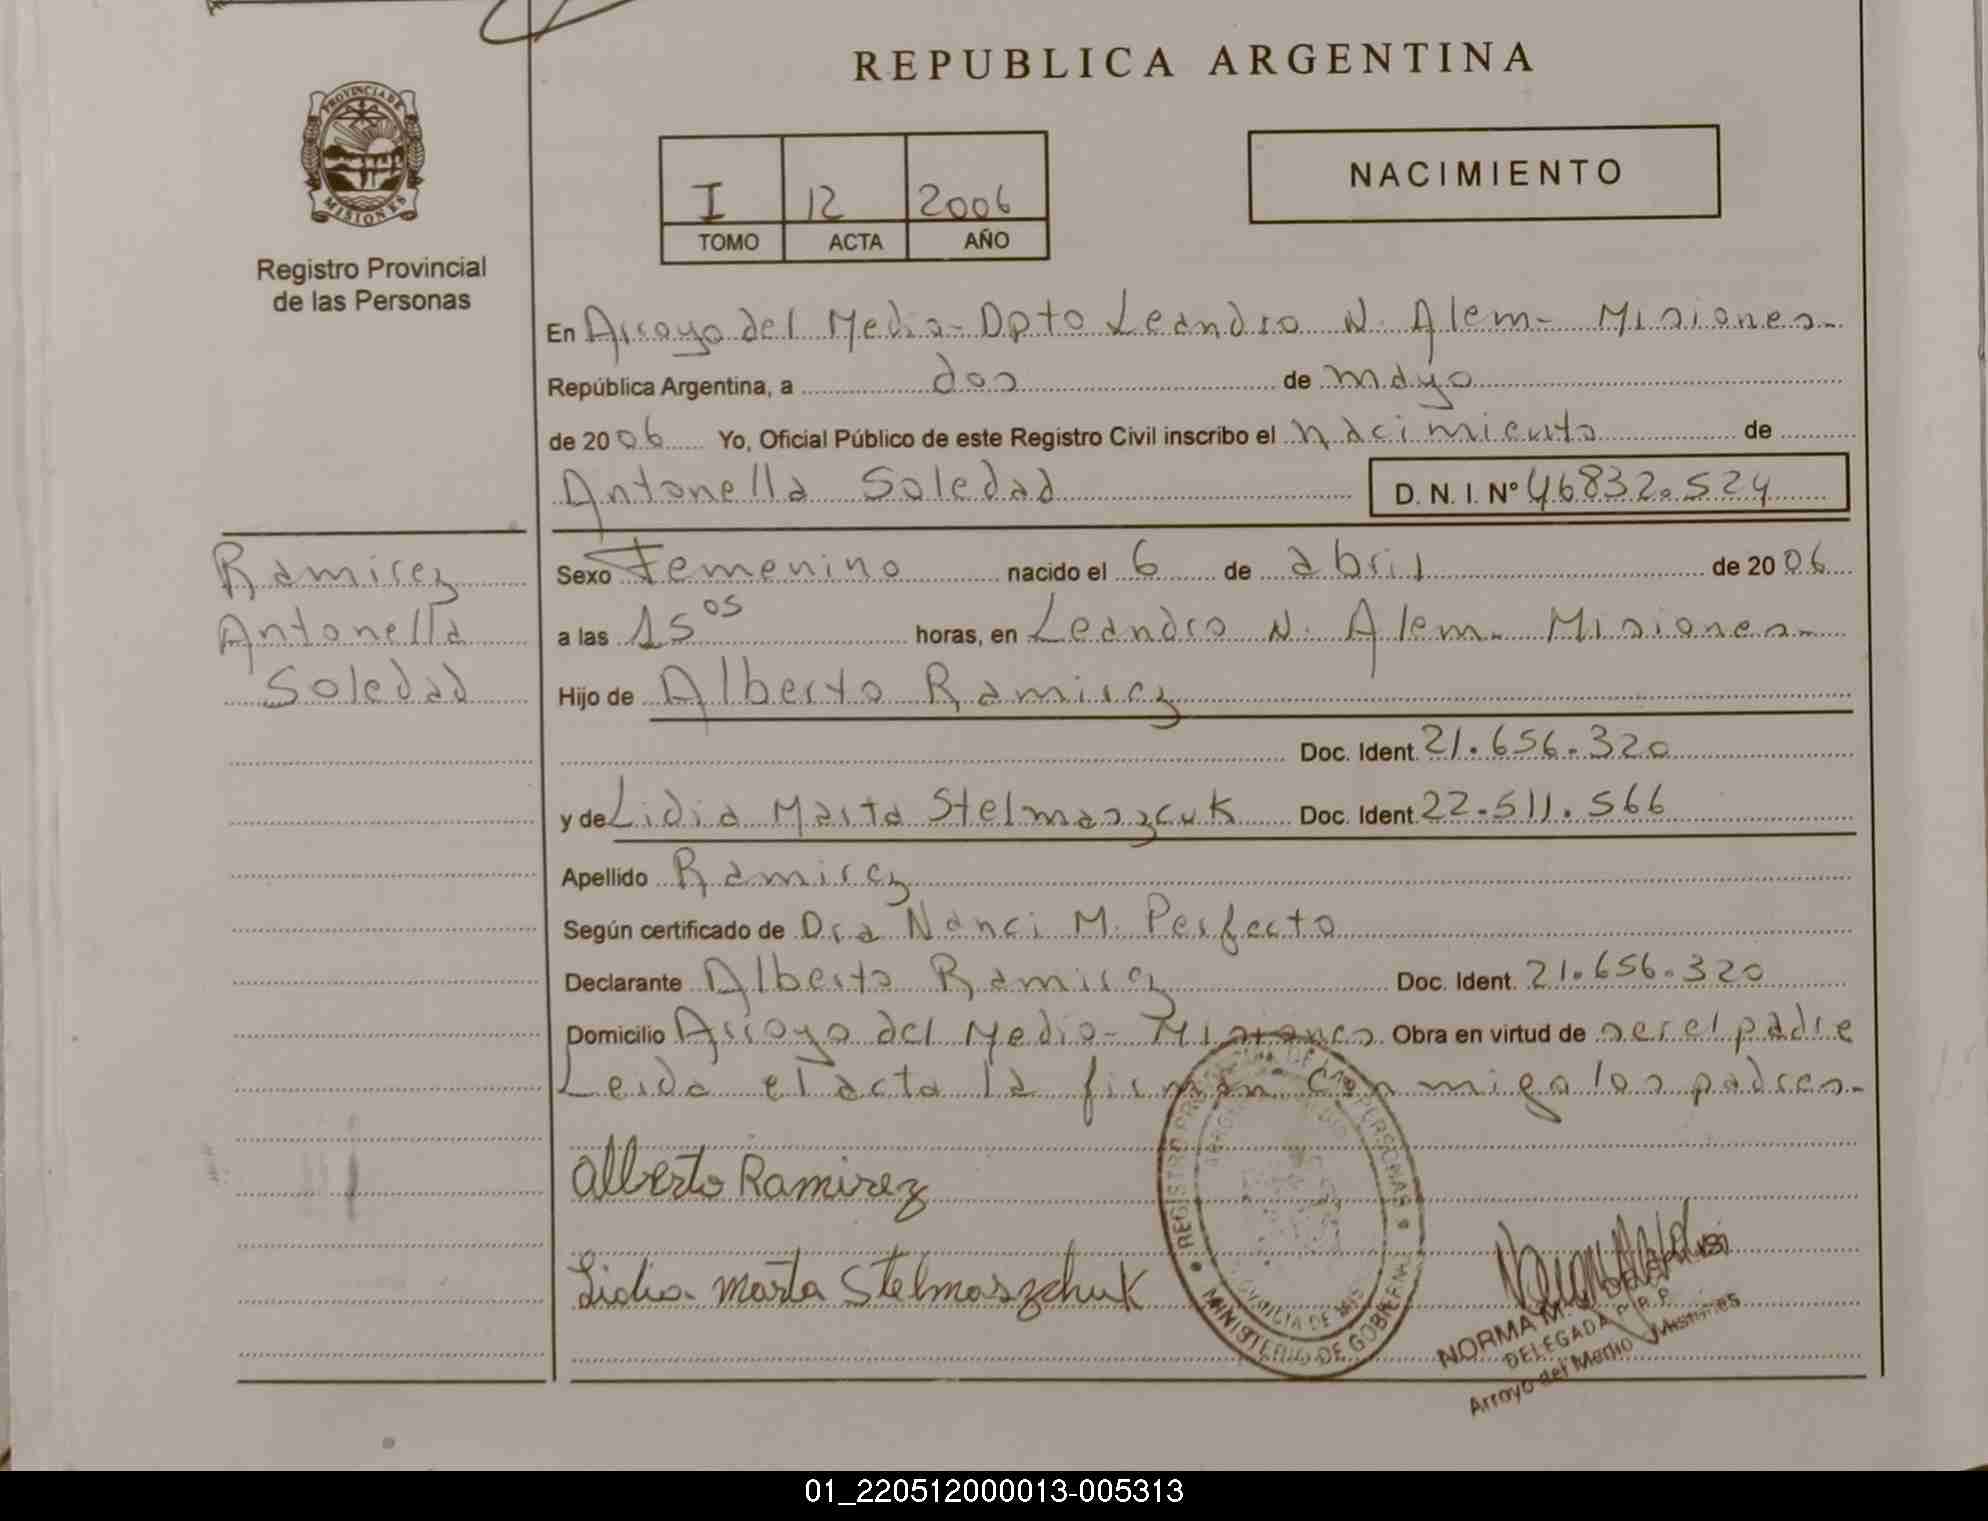 REPUBLICA ARGENTINA
PROVINCIA DE MISIONES
Registro Provincial
de las Personas
I 12 2006
TOMO ACTA AÑO
NACIMIENTO
En Arroyo del Medio - Dpto Leandro N. Alem - Misiones -
República Argentina, a dos de mayo
de 2006 Yo, Oficial Público de este Registro Civil inscribo el nacimiento de
Antonella Soledad D. N. I. Nº 46832.524
Ramirez
Antonella
Soledad
Sexo Femenino nacido el 6 de abril de 2006
a las 15 05 horas, en Leandro N. Alem - Misiones -
Hijo de Alberto Ramirez
Doc. Ident. 21.656.320
y de Lidia Marta Stelmaszcuk Doc. Ident. 22.511.566
Apellido Ramirez
Según certificado de Dra Nanci M. Perfecto
Declarante Alberto Ramirez Doc. Ident. 21.656.320
Domicilio Arroyo del Medio - Misiones Obra en virtud de ser el padre
Leida el acta la firman conmigo los padres -
Alberto Ramirez
Lidia Marta Stelmaszchuk
REGISTRO DE LAS PERSONAS
MINISTERIO DE GOBIERNO
NORMA M.
DELEGADA R. P. P.
Arroyo del Medio Misiones
01_220512000013-005313